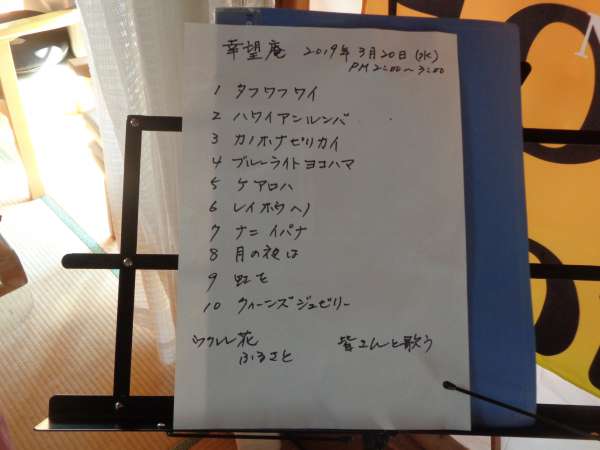 幸望庵 2019年3月20日(水)
PM 2:00～3:00
1 タフワフワイ
2 ハワイアンルンバ
3 カノホナピリカイ
4 ブルーライトヨコハマ
5 ケアロハ
6 レイホウヘノ
7 ナニ イパナ
8 月の夜は
9 虹を
10 クィーンズジュビリー
ウクレレ 花 皆さんと歌う
ふるさと